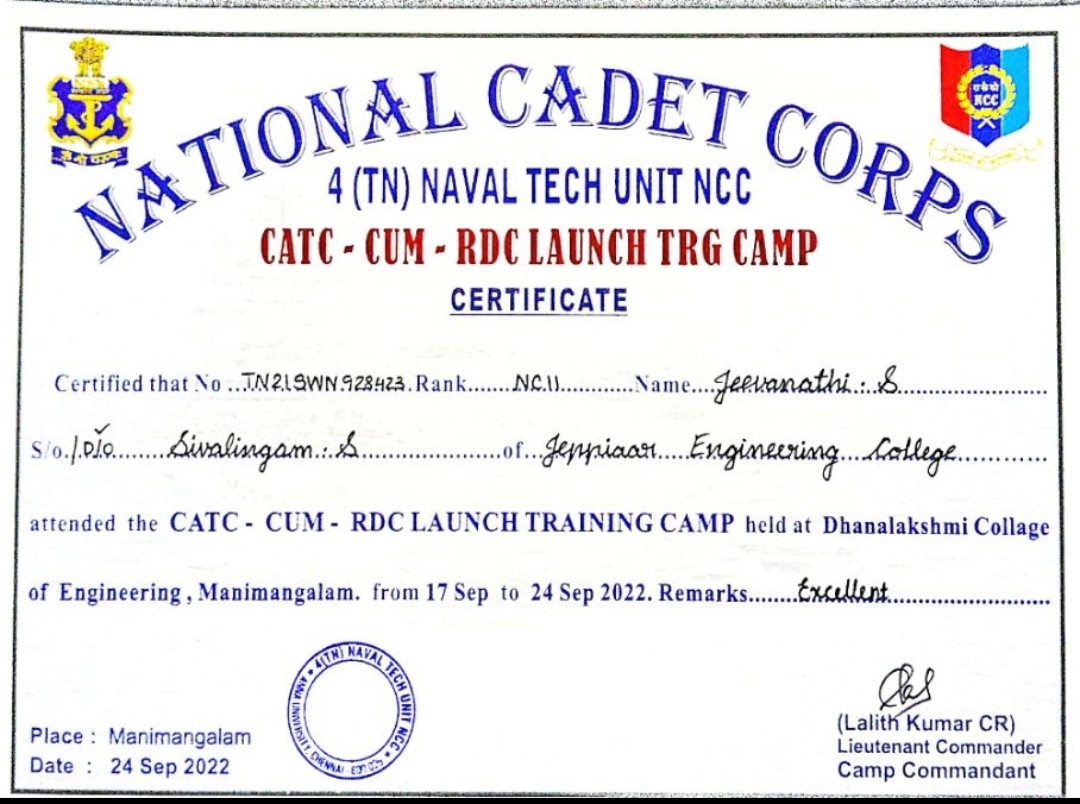 NATIONAL CADET CORPS
NCC
4 (TN) NAVAL TECH UNIT NCC
CATC - CUM - RDC LAUNCH TRG CAMP
CERTIFICATE
Certified that No ...TN21SWN928423.Rank.......NC11............Name....Jeevanathi . S........................
S/o./D/o........Sivalingam . S......................of...Jeppiaar....Engineering...College.............
attended the CATC - CUM - RDC LAUNCH TRAINING CAMP held at Dhanalakshmi Collage
of Engineering , Manimangalam. from 17 Sep to 24 Sep 2022. Remarks.......Excellent.........................
4(TN) NAVAL TECH UNIT NCC
ANNA UNIVERSITY, CHENNAI - 600 025
Place : Manimangalam
Date : 24 Sep 2022
(Lalith Kumar CR)
Lieutenant Commander
Camp Commandant